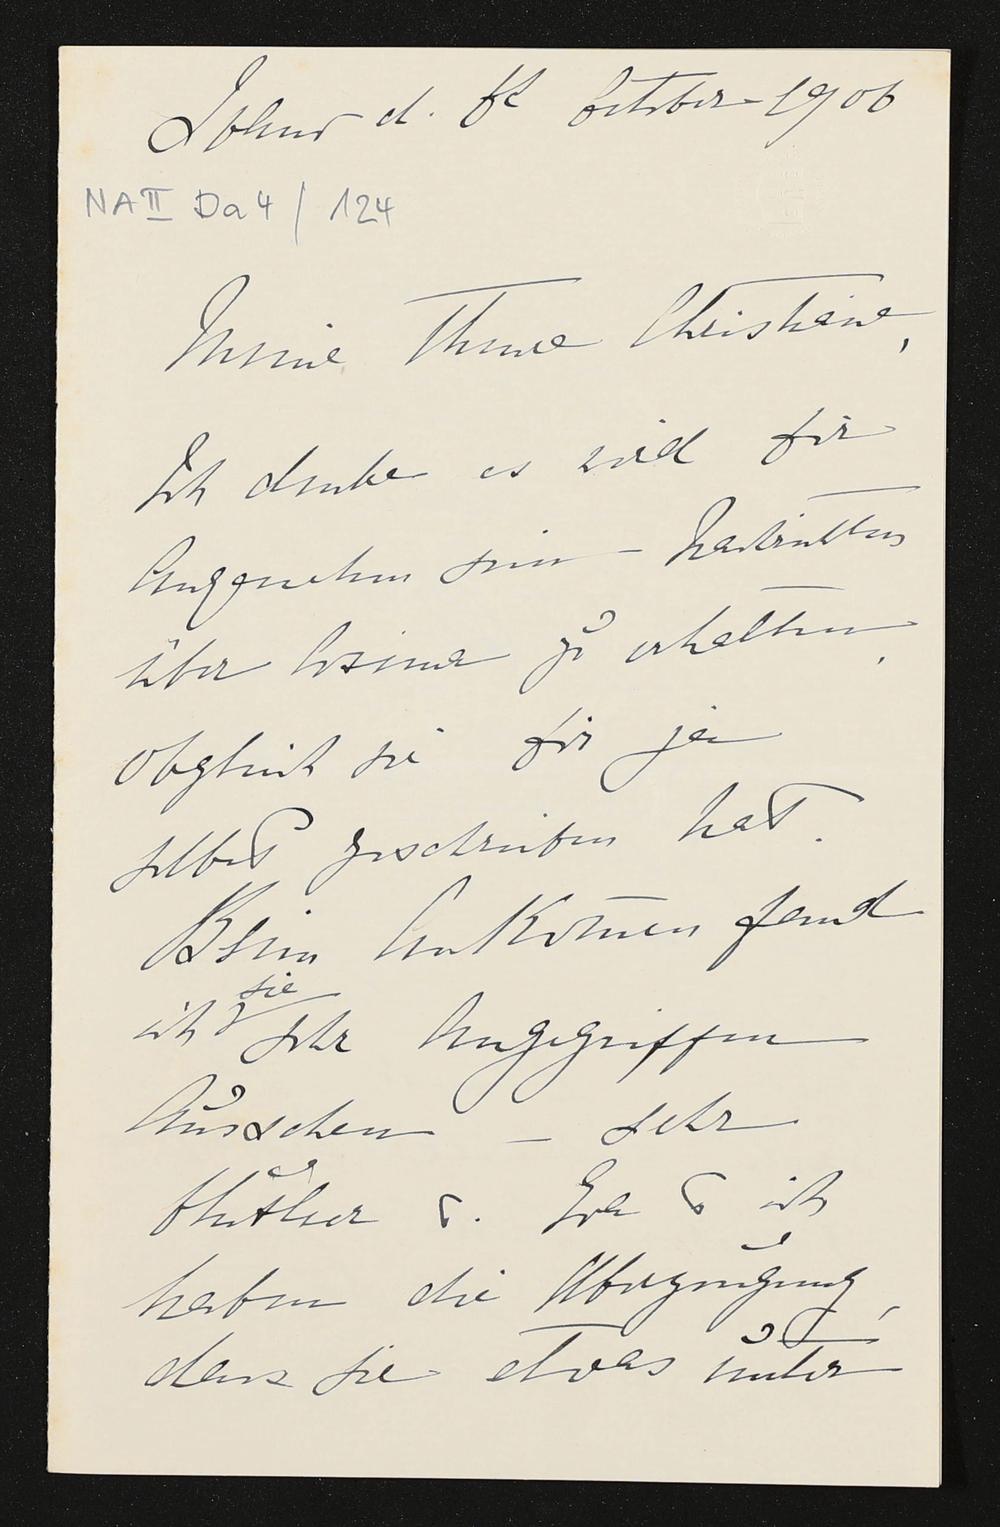 d. October 1906
NA II Da 4 / 124
Meine Theure Christiane,
Ich denke es wird Dir
Angenehm sein – Nachrichten
über Cosima zu erhalten,
obgleich sie Dir ja
selbst geschrieben hat.
Beim Ankom̄en fand
ich sie sehr Angegriffen
Aussehen – sehr
Eva u ich
haben die Überzeugung,
dass sie etwas unter